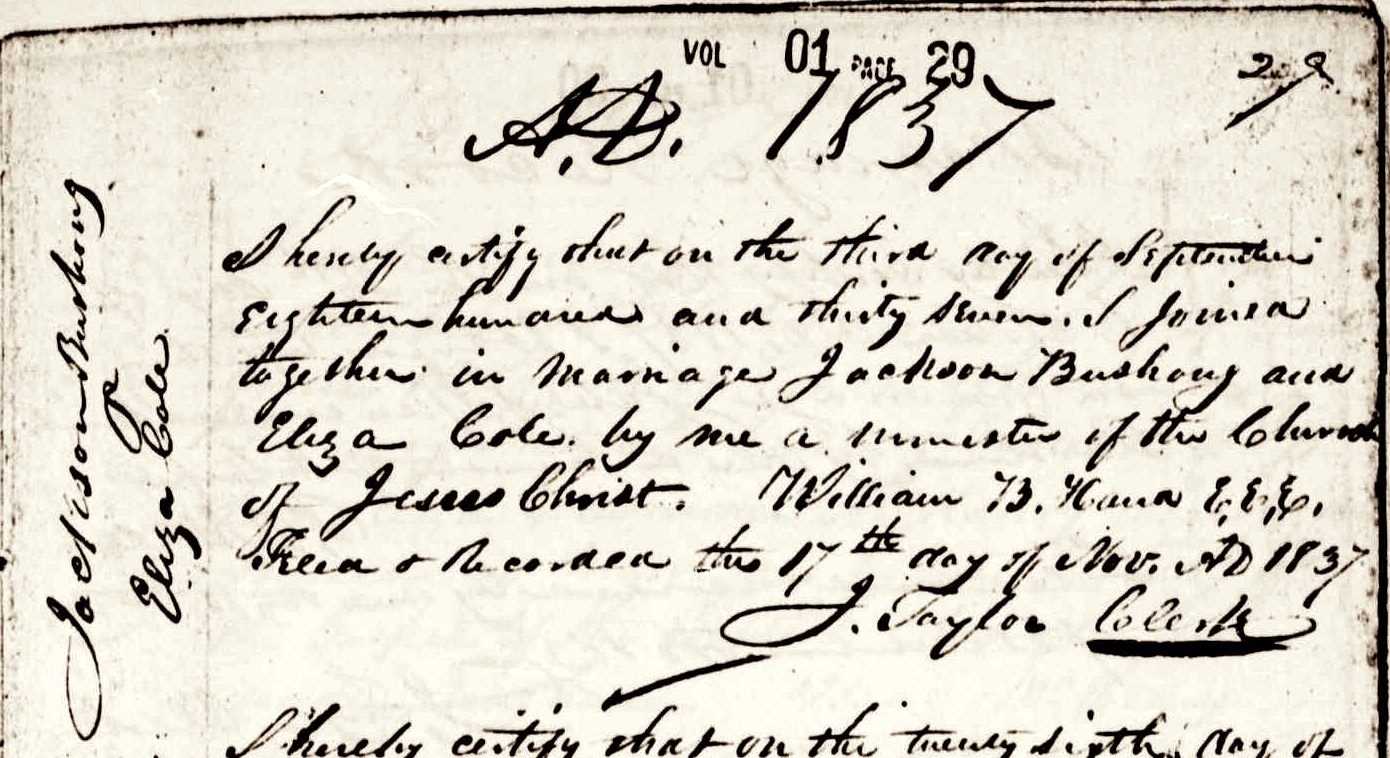 VOL 01 PAGE 29
29
A.D. 1837
Jackson Bushong
&
Eliza Cole
I hereby certify that on the third day of September
Eighteen hundred and thirty seven. I Joined
together in Marriage Jackson Bushong and
Eliza Cole. by me a minister of the Church
of Jesus Christ. William B. Hand E,E,E,
Filed & Recorded this 17th day of Nov. AD 1837
J. Taylor Clerk
I hereby certify that on the twenty sixth day of